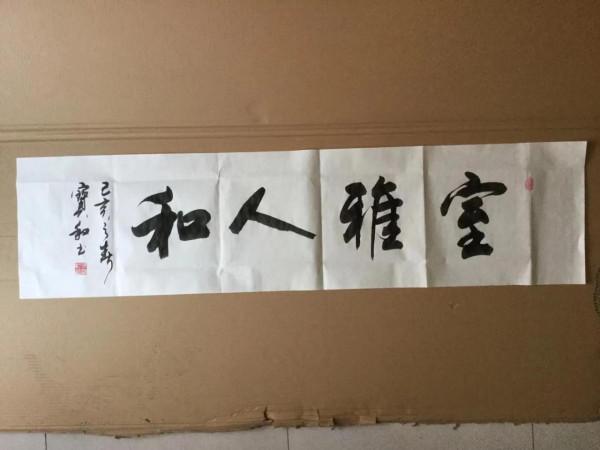 室雅人和
己亥之春
寶和书